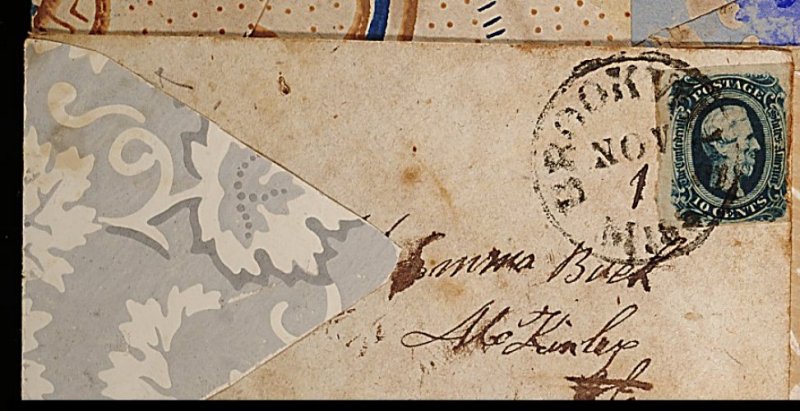 BROOKV
NOV
1
MISS
POSTAGE
The Confederate States of America
10 CENTS
Emma Buck
McKinley